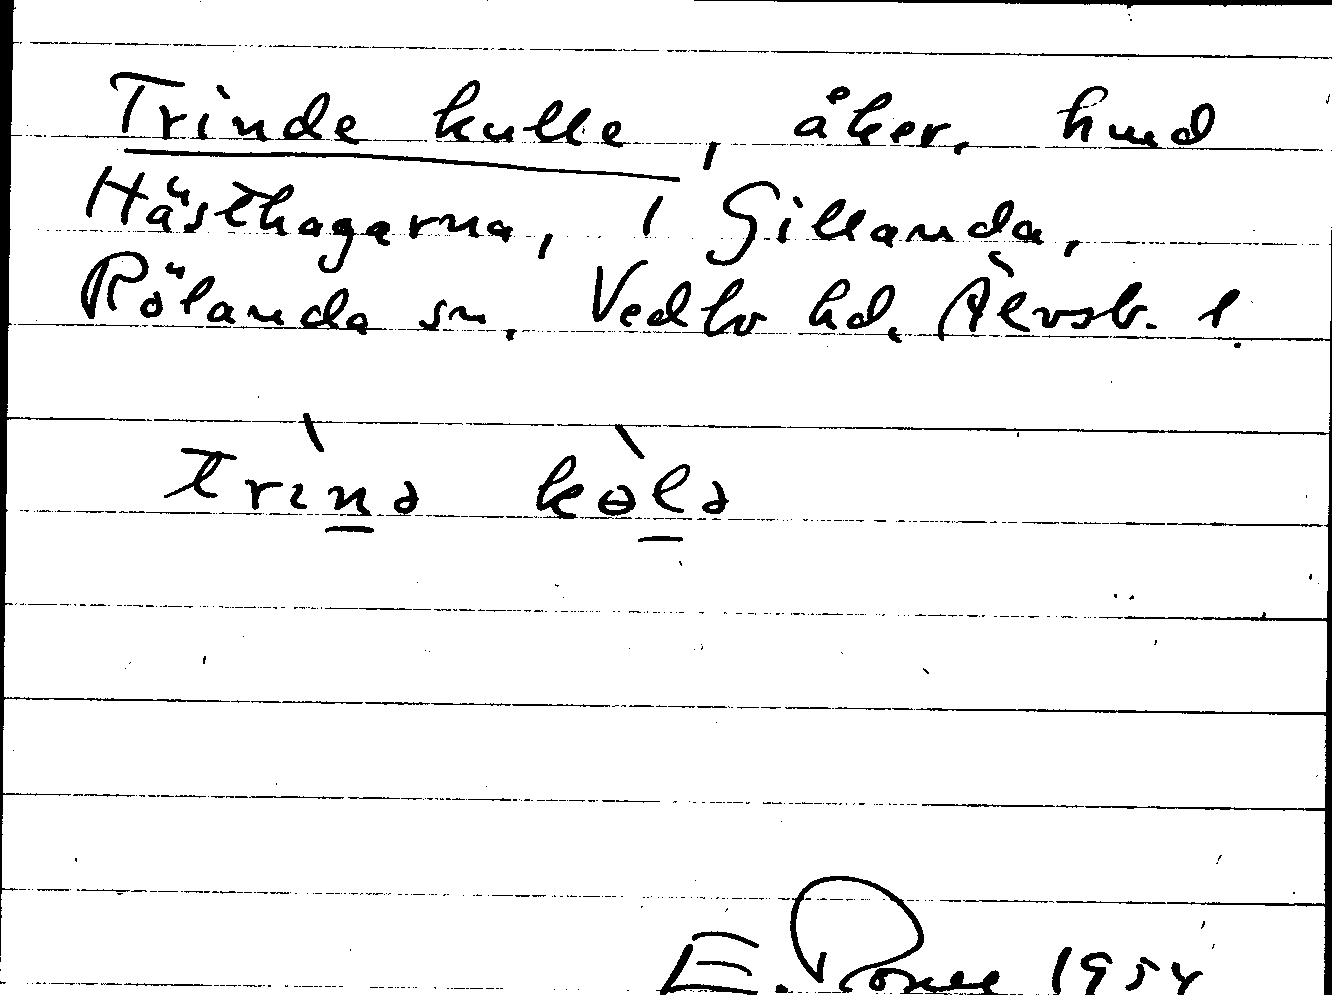 Trinde kulle, åker, hmd
Hästhagarna, 1 Gillanda,
Rölanda sn. Vedbo hd. Älvsb. l.
trìnə kɵ̀lə
E. 1954